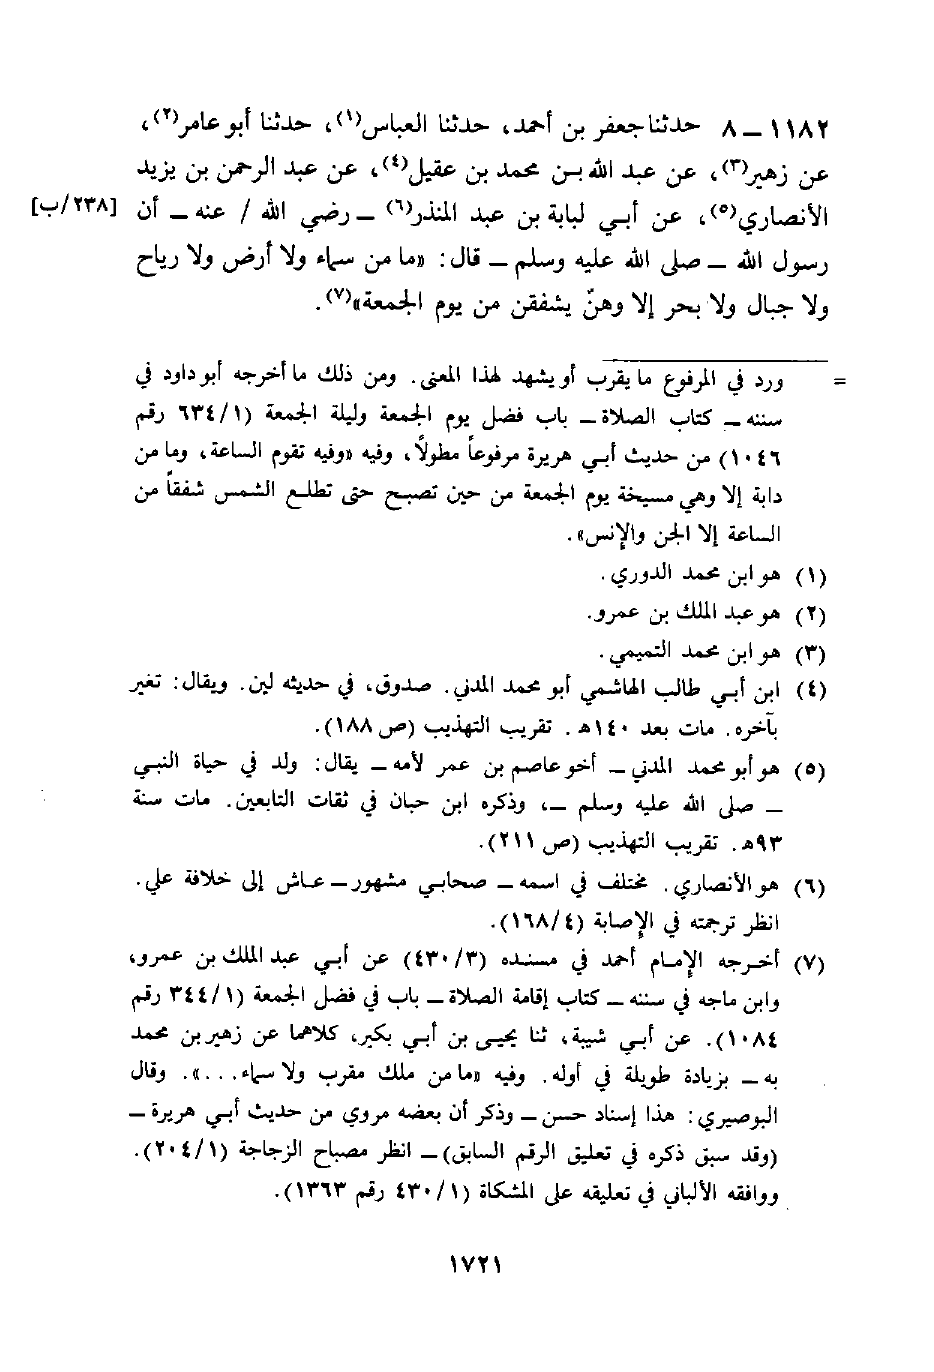 ١١٨٢ ــ ٨ حدثنا جعفر بن أحمد، حدثنا العباس(١)، حدثنا أبو عامر(٢)،
عن زهير(٣)، عن عبد الله بن محمد بن عقيل(٤)، عن عبد الرحمن بن يزيد
الأنصاري(٥)، عن أبي لبابة بن عبد المنذر(٦) ــ رضي الله / عنه ــ أن [٢٣٨/ب]
رسول الله ــ صلى الله عليه وسلم ــ قال: «ما من سماء ولا أرض ولا رياح
ولا جبال ولا بحر إلا وهنّ يشفقن من يوم الجمعة»(٧).
= ورد في المرفوع ما يقرب أو يشهد لهذا المعنى. ومن ذلك ما أخرجه أبو داود في
سننه ــ كتاب الصلاة ــ باب فضل يوم الجمعة وليلة الجمعة (١/ ٦٣٤ رقم
١٠٤٦) من حديث أبي هريرة مرفوعاً مطولاً، وفيه «وفيه تقوم الساعة، وما من
دابة إلا وهي مسيخة يوم الجمعة من حين تصبح حتى تطلع الشمس شفقاً من
الساعة إلا الجن والإنس».
(١) هو ابن محمد الدوري.
(٢) هو عبد الملك بن عمرو.
(٣) هو ابن محمد التميمي.
(٤) ابن أبي طالب الهاشمي أبو محمد المدني. صدوق، في حديثه لين. ويقال: تغير
بآخره. مات بعد ١٤٠هـ. تقريب التهذيب (ص ١٨٨).
(٥) هو أبو محمد المدني ــ أخو عاصم بن عمر لأمه ــ يقال: ولد في حياة النبي
ــ صلى الله عليه وسلم ــ، وذكره ابن حبان في ثقات التابعين. مات سنة
٩٣هـ. تقريب التهذيب (ص ٢١١).
(٦) هو الأنصاري. مختلف في اسمه ــ صحابي مشهور ــ عاش إلى خلافة علي.
انظر ترجمته في الإصابة (٤/ ١٦٨).
(٧) أخرجه الإمام أحمد في مسنده (٣/ ٤٣٠) عن أبي عبد الملك بن عمرو،
وابن ماجه في سننه ــ كتاب إقامة الصلاة ــ باب في فضل الجمعة (١/ ٣٤٤ رقم
١٠٨٤). عن أبي شيبة، ثنا يحيى بن أبي بكير، كلاهما عن زهير بن محمد
به ــ بزيادة طويلة في أوله. وفيه «ما من ملك مقرب ولا سماء. . .». وقال
البوصيري: هذا إسناد حسن ــ وذكر أن بعضه مروي من حديث أبي هريرة ــ
(وقد سبق ذكره في تعليق الرقم السابق) ــ انظر مصباح الزجاجة (١/ ٢٠٤).
ووافقه الألباني في تعليقه على المشكاة (١/ ٤٣٠ رقم ١٣٦٣).
١٧٢١